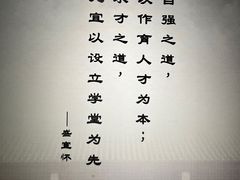 自强之道，
以作育人才为本；
求才之道，
尤宜以设立学堂为先
——盛宣怀